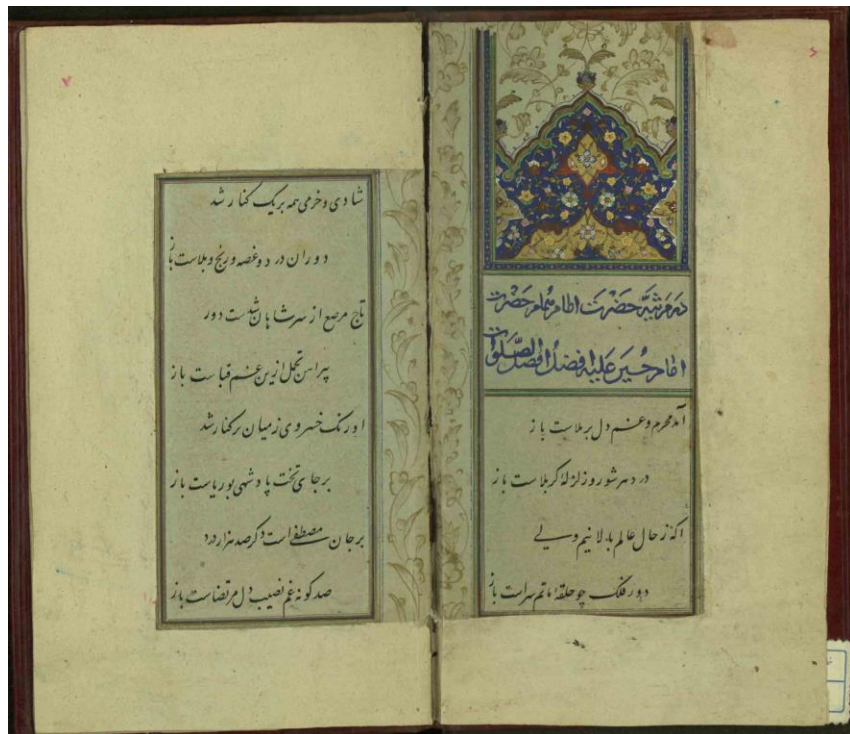 در مرثیه حضرت امام همام حضرت
امام حسین علیه افضل الصلوات
آمد محرم و غم دل برملاست باز
در دهر شور و زلزله کربلاست باز
اگه ز حال عالم بالا نیم ولی
دور فلک چو حلقه ماتم سراست باز
شادی و خرمی همه بر یک کنار شد
دوران درد و غصه و رنج و بلاست باز
تاج مرصع از سر شاهان شدست دور
پیراهن تجمل ازین غم قباست باز
اورنگ خسروی ز میان بر کنار شد
بر جای تخت پادشهی بوریاست باز
بر جان مصطفی است دگر صد هزار درد
صد گونه غم نصیب دل مرتضاست باز